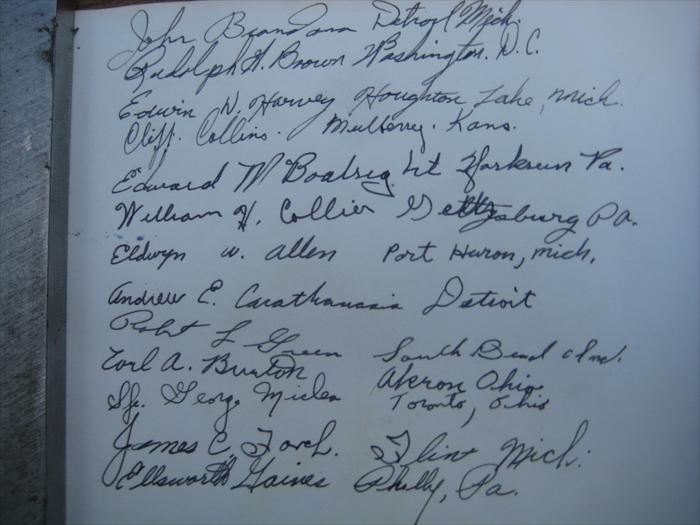 John Detroit Mich.
Rudolph H. Brown Washington. D.C.
Edwin W. Harvey Houghton Lake, Mich.
Cliff. Collins. Mulberry. Kans.
Edward M Yorkrun Pa.
William H. Collier Gettysburg Pa.
Eldwyn W. Allen Port Huron, Mich.
Andrew E. Detroit
Robt L Green South Bend Ind.
Earl A. Burton Akron Ohio
George Toronto, Ohio
James C. Flint Mich.
Ellsworth Gaines Philly, Pa.